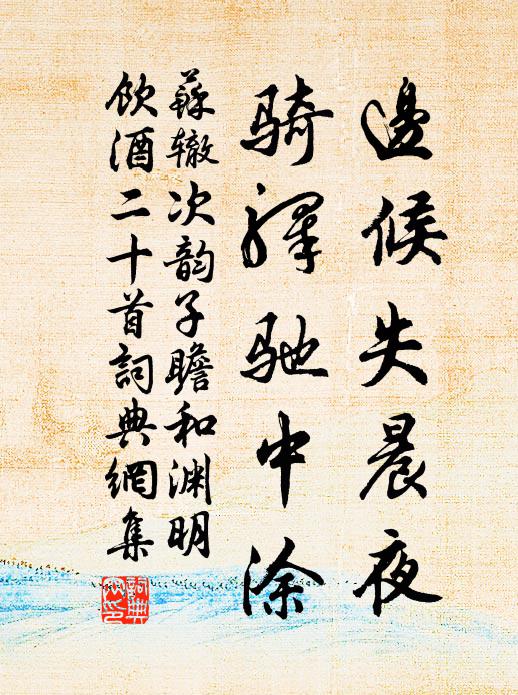 邊候失晨夜
骑驿驰中涂
蘇辙次韵子瞻和渊明
飲酒二十首詞典網集